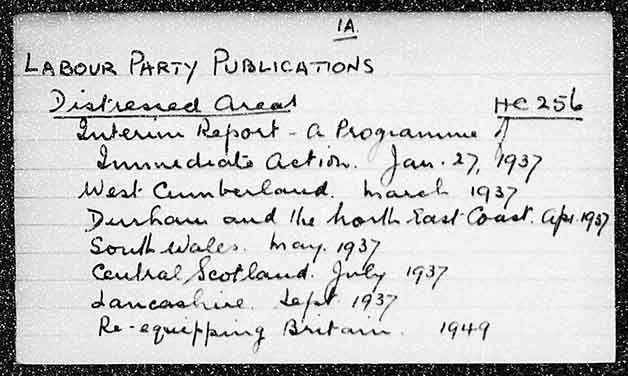 1A.
LABOUR PARTY PUBLICATIONS
Distressed Areas HC 256
Interim Report - A Programme of
Immediate Action. Jan. 27, 1937
West Cumberland. March 1937
Durham and the North East Coast. Apr. 1937
South Wales. May. 1937
Central Scotland. July 1937
Lancashire. Sept 1937
Re-equipping Britain. 1949